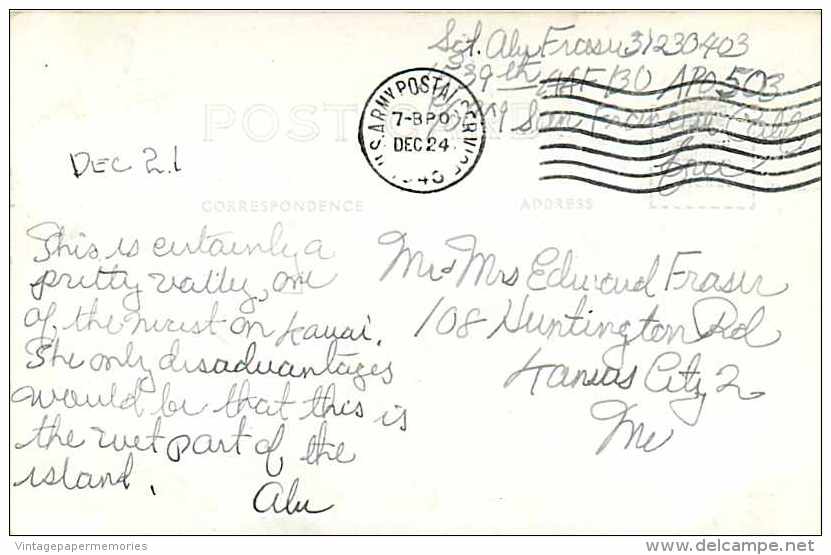 Sgt. Alex Fraser 31230403
339th AAF BU APO 503
℅ PM San Francisco Calif
Free
POST CARD
U.S. ARMY POSTAL SERVICE
7-BPO
DEC 24
DEC 21
CORRESPONDENCE
ADDRESS
This is certainly a
pretty valley, one
of the nicest on Kauai.
The only disadvantages
would be that this is
the wet part of the
island.
Alex
Mr & Mrs Edward Fraser
108 Huntington Rd
Kansas City 2
Mo
Vintagepapermemories
delcampe.net